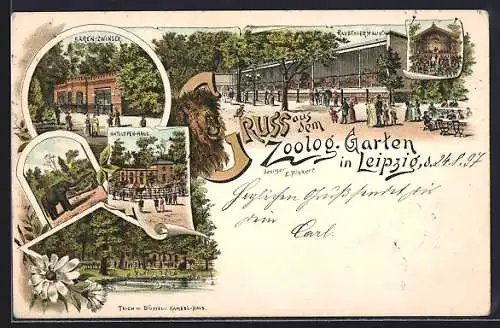 BÄREN-ZWINGER
RAUBTHIERHAUS
ANTILOPEN-HAUS
GRUSS aus dem
Zoolog. Garten
in Leipzig, d. 24.8.97
Besitzer E. Pinkert
Herzlichen Gruß sendet dir
dein
Carl.
TEICH M. BÜFFEL U. KAMEEL-HAUS.